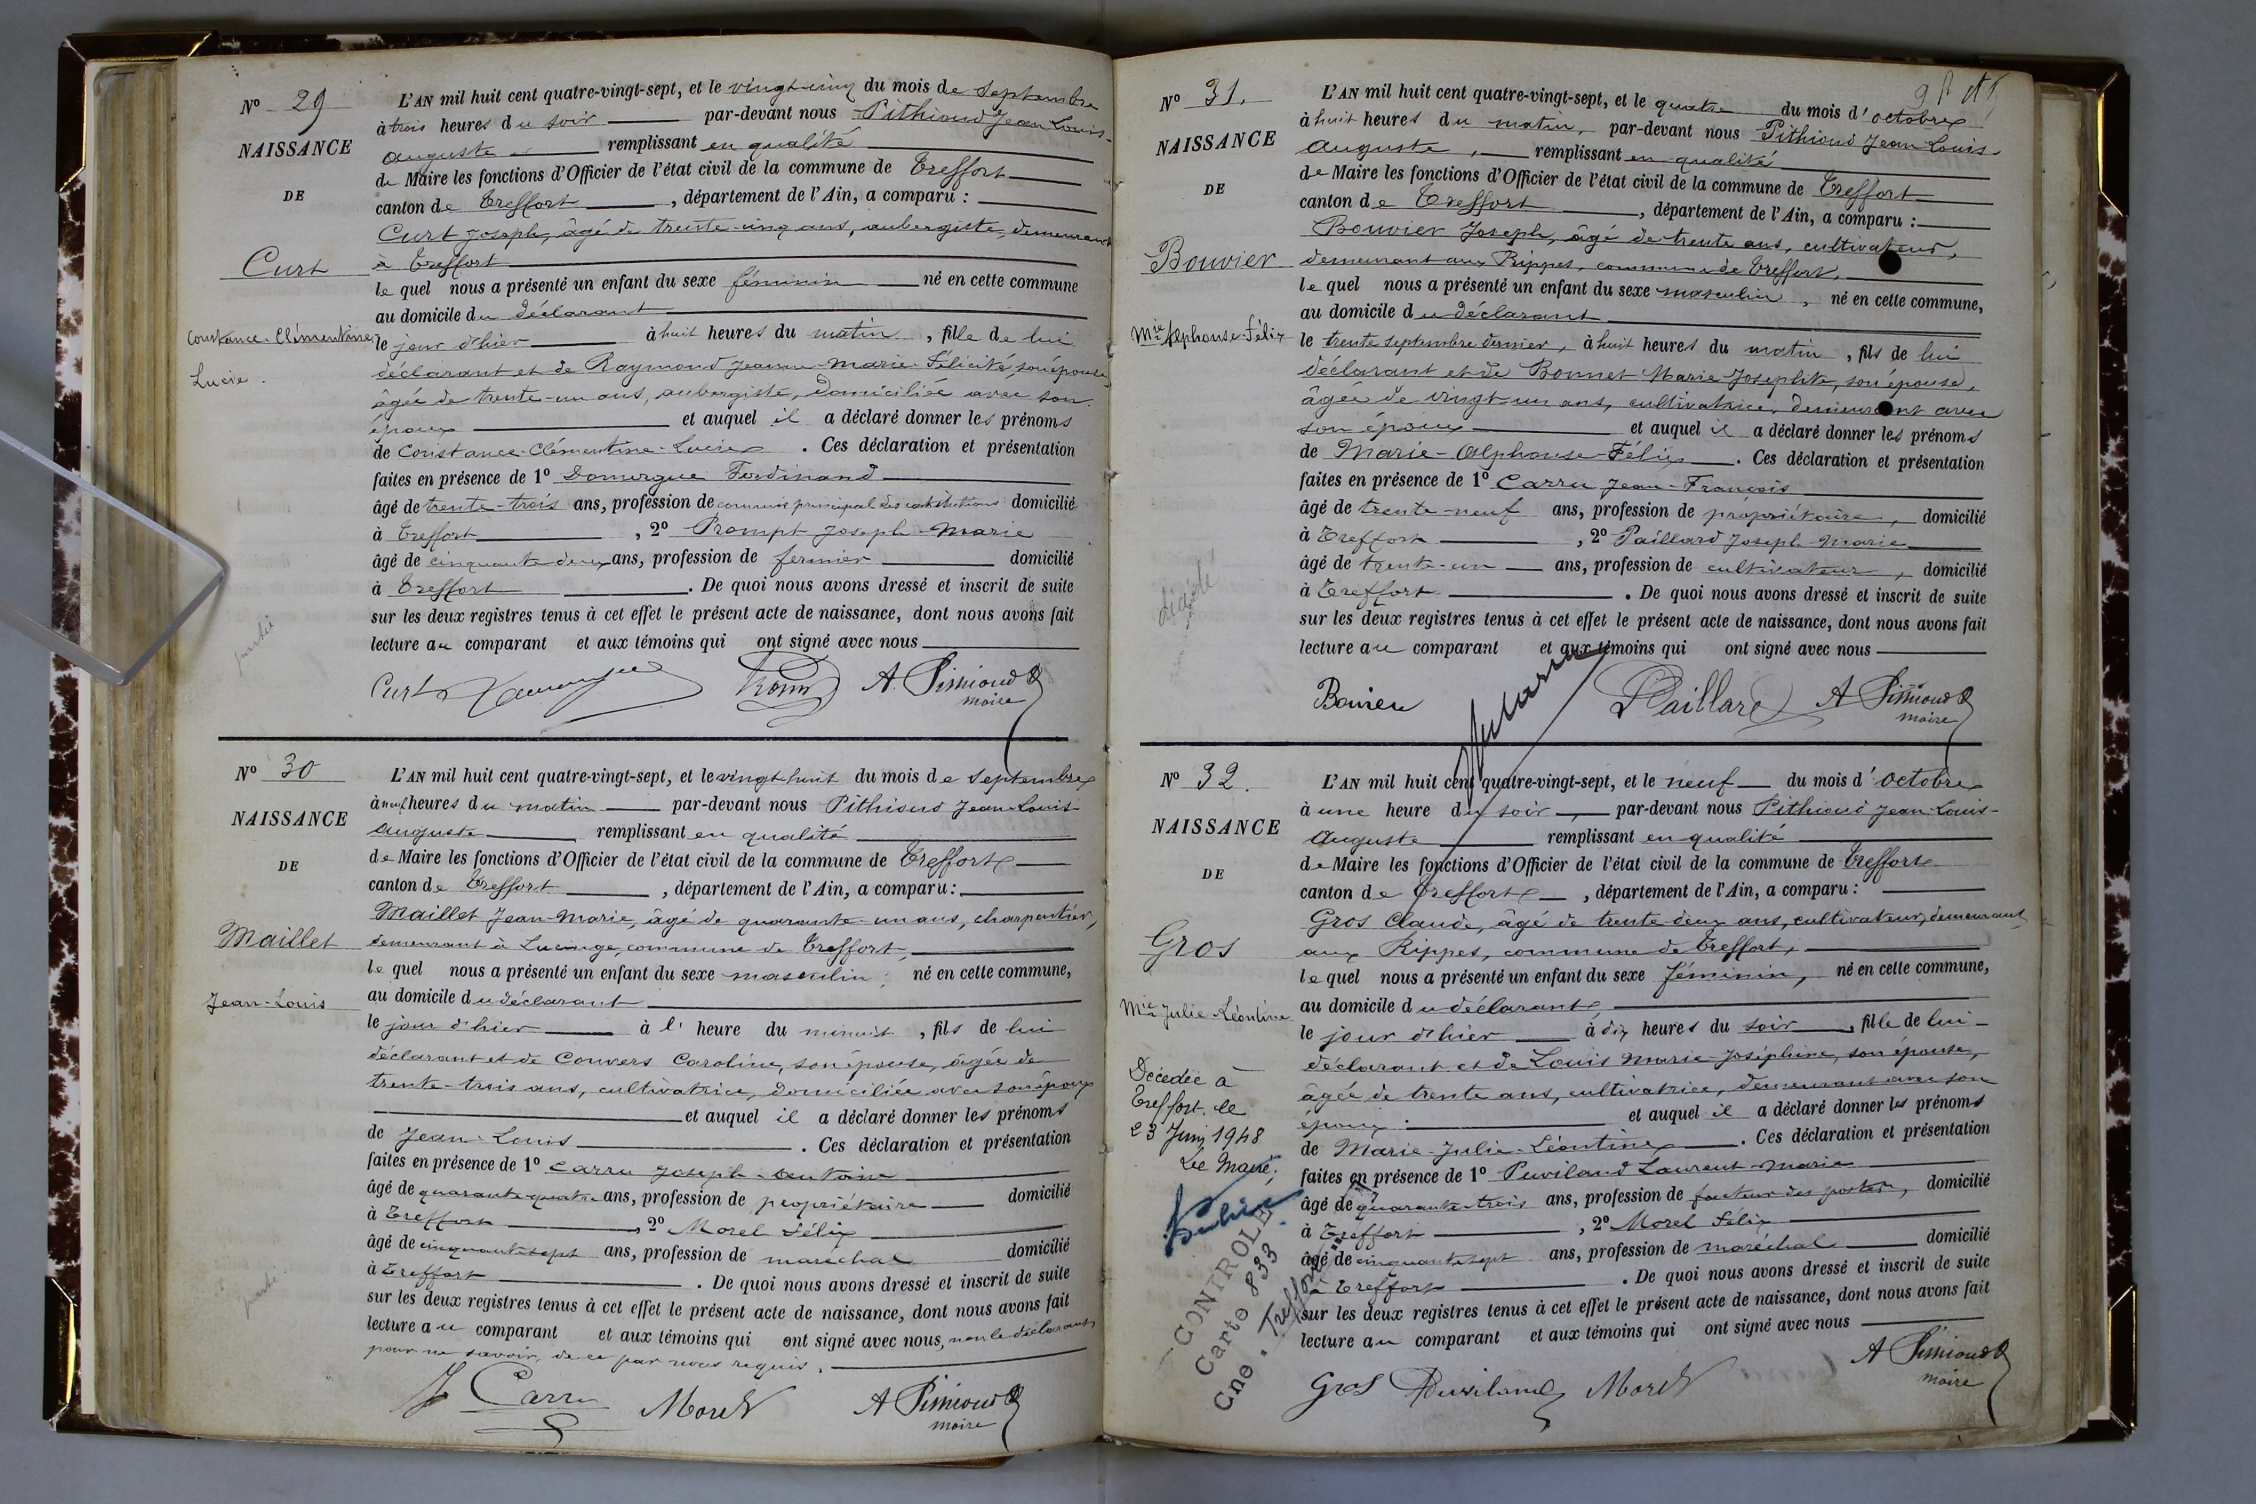 N° 29
NAISSANCE
DE
Curt
Constance-Clémentine
Lucie.
L'AN mil huit cent quatre-vingt-sept, et le vingt-cinq du mois de septembre
à trois heures du soir par-devant nous Pithioud Jean Louis-
Auguste remplissant en qualité
de Maire les fonctions d'Officier de l'état civil de la commune de Treffort
canton de Treffort, département de l'Ain, a comparu :
Curt Joseph, âgé de trente-cinq ans, aubergiste, demeurant
à Treffort
le quel nous a présenté un enfant du sexe féminin né en cette commune
au domicile du déclarant
le jour d'hier à huit heures du matin, fille de lui
déclarant et de Raymond Jeanne-Marie-Félicité, son épouse,
âgée de trente-un ans, aubergiste, domiciliée avec son
époux et auquel il a déclaré donner les prénoms
de Constance-Clémentine-Lucie. Ces déclaration et présentation
faites en présence de 1° Domergue Ferdinand
âgé de trente-trois ans, profession de commis principal des contributions domicilié
à Treffort, 2° Prompt Joseph-Marie
âgé de cinquante-deux ans, profession de fermier domicilié
à Treffort. De quoi nous avons dressé et inscrit de suite
sur les deux registres tenus à cet effet le présent acte de naissance, dont nous avons fait
lecture au comparant et aux témoins qui ont signé avec nous
Curt A. Pithioud
maire
N° 30
NAISSANCE
DE
Maillet
Jean-Louis
L'AN mil huit cent quatre-vingt-sept, et le vingt-huit du mois de septembre
à neuf heures du matin par-devant nous Pithioud Jean-Louis-
Auguste remplissant en qualité
de Maire les fonctions d'Officier de l'état civil de la commune de Treffort
canton de Treffort, département de l'Ain, a comparu :
Maillet Jean-Marie, âgé de quarante-un ans, charpentier,
demeurant à Lucinge, commune de Treffort,
le quel nous a présenté un enfant du sexe masculin, né en cette commune,
au domicile du déclarant
le jour d'hier à l' heure du minuit, fils de lui
déclarant et de Convers Caroline, son épouse, âgée de
trente-trois ans, cultivatrice, domiciliée avec son époux
et auquel il a déclaré donner les prénoms
de Jean-Louis. Ces déclaration et présentation
faites en présence de 1° Carru Joseph-Antoine
âgé de quarante-quatre ans, profession de propriétaire domicilié
à Treffort, 2° Morel Félix
âgé de cinquante-sept ans, profession de maréchal domicilié
à Treffort. De quoi nous avons dressé et inscrit de suite
sur les deux registres tenus à cet effet le présent acte de naissance, dont nous avons fait
lecture au comparant et aux témoins qui ont signé avec nous, non le déclarant
pour ne savoir, de ce par nous requis.
J Carru Morel A Pithioud
maire
N° 31.
NAISSANCE
DE
Bouvier
Mie Alphonse-Félix
décédé
L'AN mil huit cent quatre-vingt-sept, et le quatre du mois d'octobre
à huit heures du matin, par-devant nous Pithioud Jean-Louis-
Auguste, remplissant en qualité
de Maire les fonctions d'Officier de l'état civil de la commune de Treffort
canton de Treffort, département de l'Ain, a comparu :
Bouvier Joseph, âgé de trente ans, cultivateur,
demeurant aux Rippes, commune de Treffort,
le quel nous a présenté un enfant du sexe masculin, né en cette commune,
au domicile du déclarant
le trente septembre dernier, à huit heures du matin, fils de lui
déclarant et de Bonnet Marie Josephte, son épouse,
âgée de vingt-un ans, cultivatrice, demeurant avec
son époux et auquel il a déclaré donner les prénoms
de Marie-Alphonse-Félix. Ces déclaration et présentation
faites en présence de 1° Carru Jean-François
âgé de trente-neuf ans, profession de propriétaire, domicilié
à Treffort, 2° Paillard Joseph-Marie
âgé de trente-un ans, profession de cultivateur, domicilié
à Treffort. De quoi nous avons dressé et inscrit de suite
sur les deux registres tenus à cet effet le présent acte de naissance, dont nous avons fait
lecture au comparant et aux témoins qui ont signé avec nous
Bouvier Paillard A Pithioud
maire
N° 32.
NAISSANCE
DE
Gros
Mie Julie Léontine
Décédée à
Treffort le
23 Juin 1948
Le Maire,
CONTROLE
Carte 833
Cne. Treffort
L'AN mil huit cent quatre-vingt-sept, et le neuf du mois d'octobre
à une heure du soir, par-devant nous Pithioud Jean-Louis-
Auguste remplissant en qualité
de Maire les fonctions d'Officier de l'état civil de la commune de Treffort
canton de Treffort, département de l'Ain, a comparu :
Gros Claude, âgé de trente-deux ans, cultivateur, demeurant
aux Rippes, commune de Treffort,
le quel nous a présenté un enfant du sexe féminin, né en cette commune,
au domicile du déclarant,
le jour d'hier à dix heures du soir, fille de lui
déclarant et de Louis Marie-Joséphine, son épouse,
âgée de trente ans, cultivatrice, demeurant avec son
époux. et auquel il a déclaré donner les prénoms
de Marie-Julie-Léontine. Ces déclaration et présentation
faites en présence de 1° Puviland Laurent-Marie
âgé de quarante-trois ans, profession de facteur des postes, domicilié
à Treffort, 2° Morel Félix
âgé de cinquante-sept ans, profession de maréchal domicilié
à Treffort. De quoi nous avons dressé et inscrit de suite
sur les deux registres tenus à cet effet le présent acte de naissance, dont nous avons fait
lecture au comparant et aux témoins qui ont signé avec nous
Gros Puviland Morel A Pithioud
maire